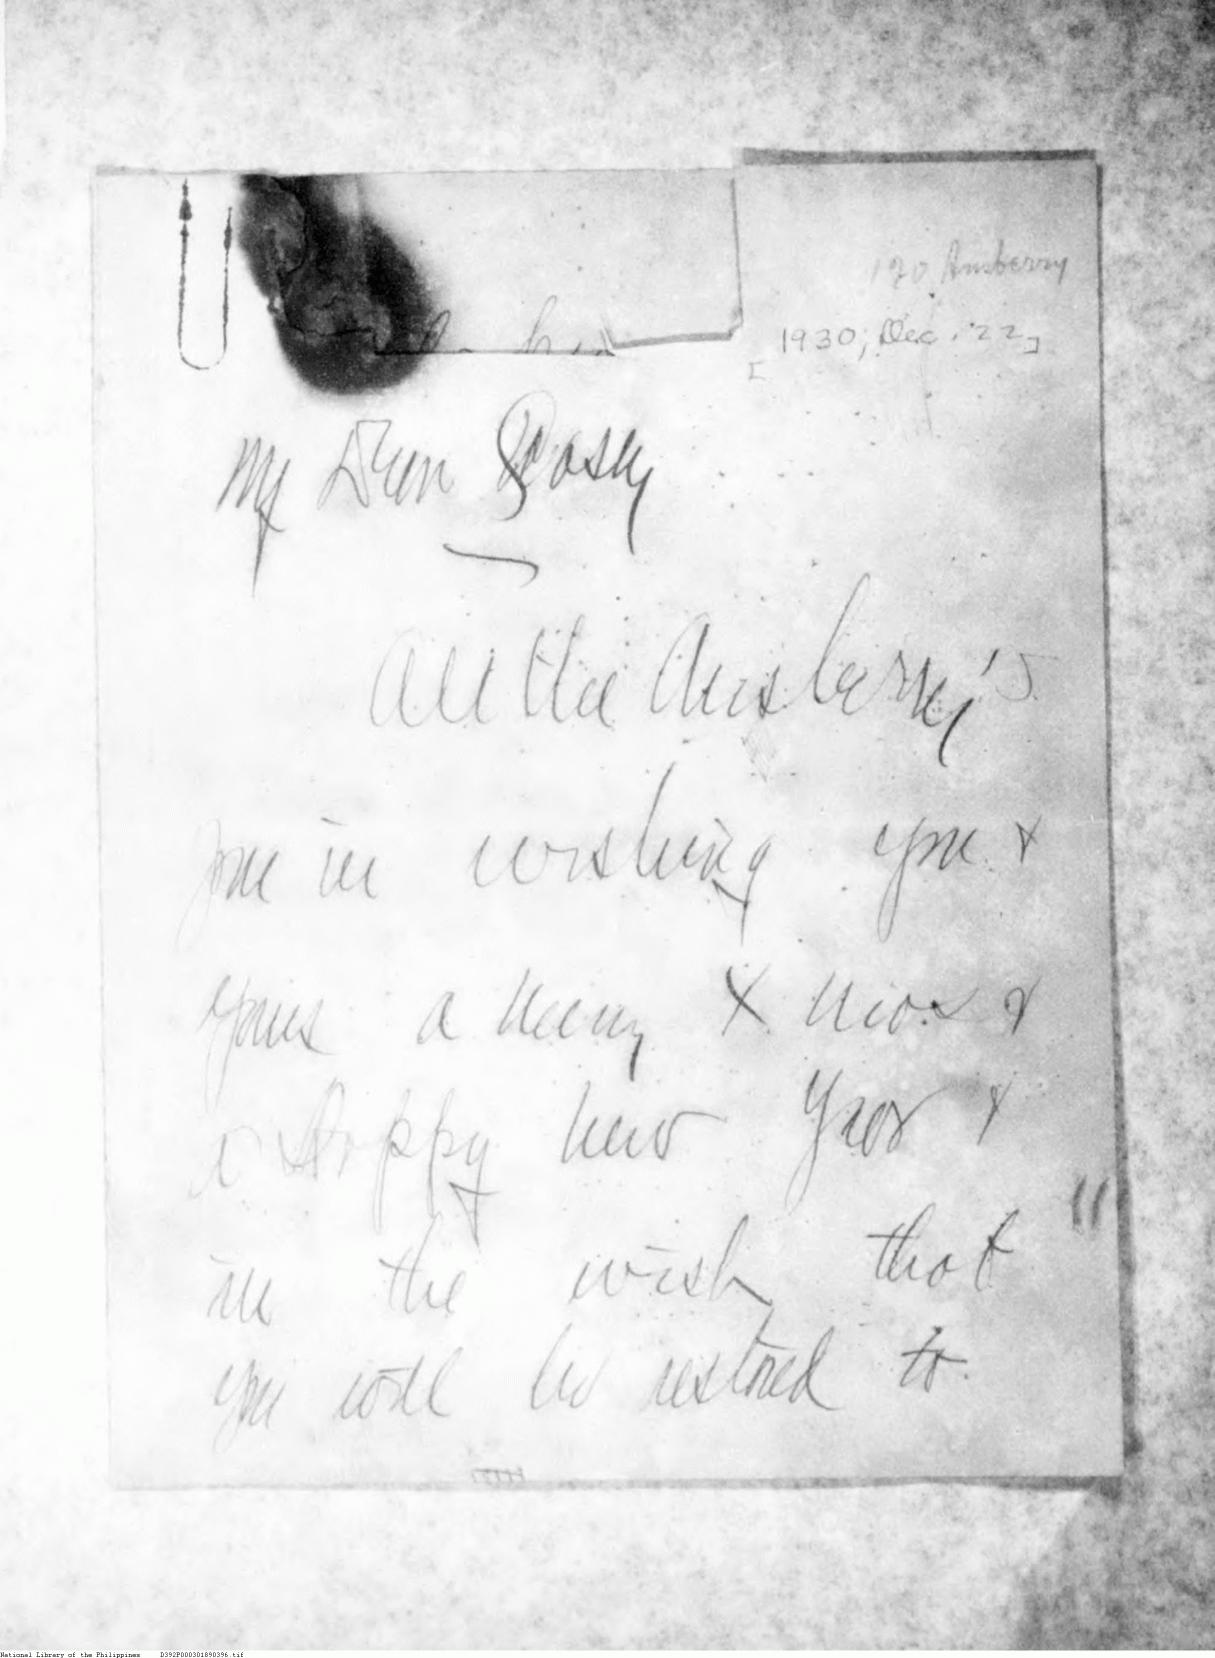 Ansberry
[1930, Dec. 22]
My Dear
All the Ansberry's
join in wishing you &
yours a merry X mas &
a Happy New Year &
in the wish that
you will be restored to
National Library of the Philippines D392P000301890396.tif